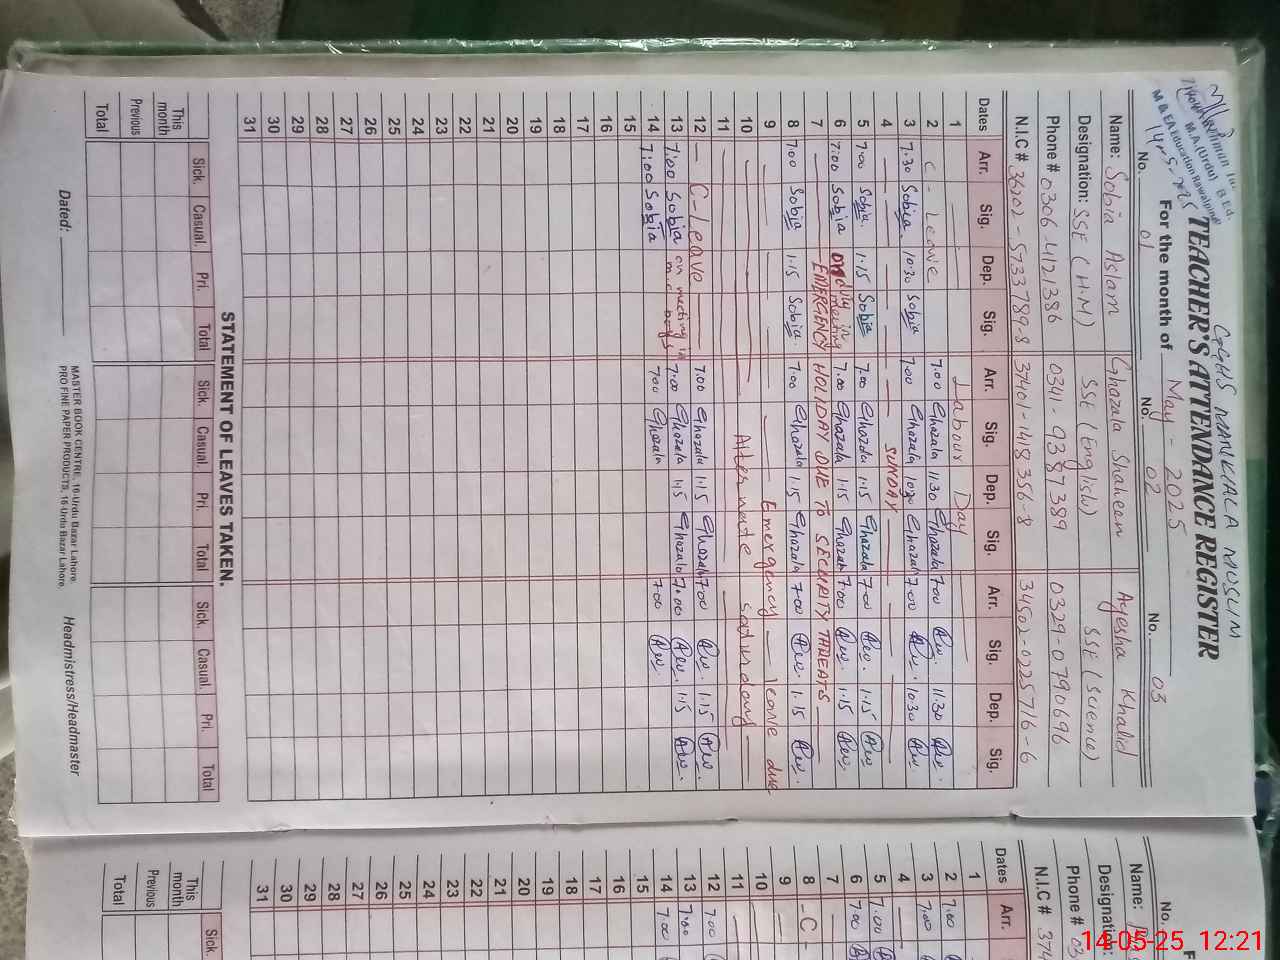 GGHS MANKIALA MUSLIM
TEACHER'S ATTENDANCE REGISTER
M.A.(Urdu) B.Ed.
M & EA Education Rawalpindi
14-5-2025
For the month of May - 2025
No. 01 No. 02 No. 03
Name: Sobia Aslam Ghazala Shaheen Ayesha Khalid
Designation: SSE (H.M) SSE (English) SSE (Science)
Phone # 0306-4121386 0341-9387389 0329-0790696
N.I.C # 36202-5733789-8 37401-1418356-8 34502-0225716-6
Dates Arr. Sig. Dep. Sig. Arr. Sig. Dep. Sig. Arr. Sig. Dep. Sig.
1 Labour Day
2 C - Leave 7.00 Ghazala 11:30 Ghazala 7:00 11:30
3 7.30 Sobia 10:30 Sobia 7.00 Ghazala 10:30 Ghazala 7:00 10:30
4 SUNDAY
5 7.00 Sobia 1.15 Sobia 7.00 Ghazala 1.15 Ghazala 7:00 1.15
6 7:00 Sobia on meeting in 7.00 Ghazala 1:15 Ghazala 7:00 1.15
7 EMERGENCY HOLIDAY DUE TO SECURITY THREATS
8 7.00 Sobia 1.15 Sobia 7.00 Ghazala 1.15 Ghazala 7.00 1.15
9 Emergency leave due
10 Alternate saturday
11
12 C-Leave 7.00 Ghazala 1.15 Ghazala 7:00 1.15
13 7:00 Sobia on meeting in 7.00 Ghazala 1:15 Ghazala 7:00 1.15
14 7:00 Sobia 7.00 Ghazala 7:00
15
16
17
18
19
20
21
22
23
24
25
26
27
28
29
30
31
STATEMENT OF LEAVES TAKEN.
Sick. Casual. Pri. Total Sick. Casual. Pri. Total Sick. Casual. Pri. Total
This month
Previous
Total
Dated:
MASTER BOOK CENTRE, 16-Urdu Bazar Lahore.
PRO FINE PAPER PRODUCTS, 16 Urdu Bazar Lahore.
Headmistress/Headmaster
No.
Name:
Designation:
Phone # 03
N.I.C # 374
Dates Arr.
1
2 7.00
3 7.00
4
5 7.00
6 7.00
7
8 -C-
9
10
11
12 7.00
13 7.00
14 7.00
15
16
17
18
19
20
21
22
23
24
25
26
27
28
29
30
31
Sick.
This month
Previous
Total
14-05-25 12:21